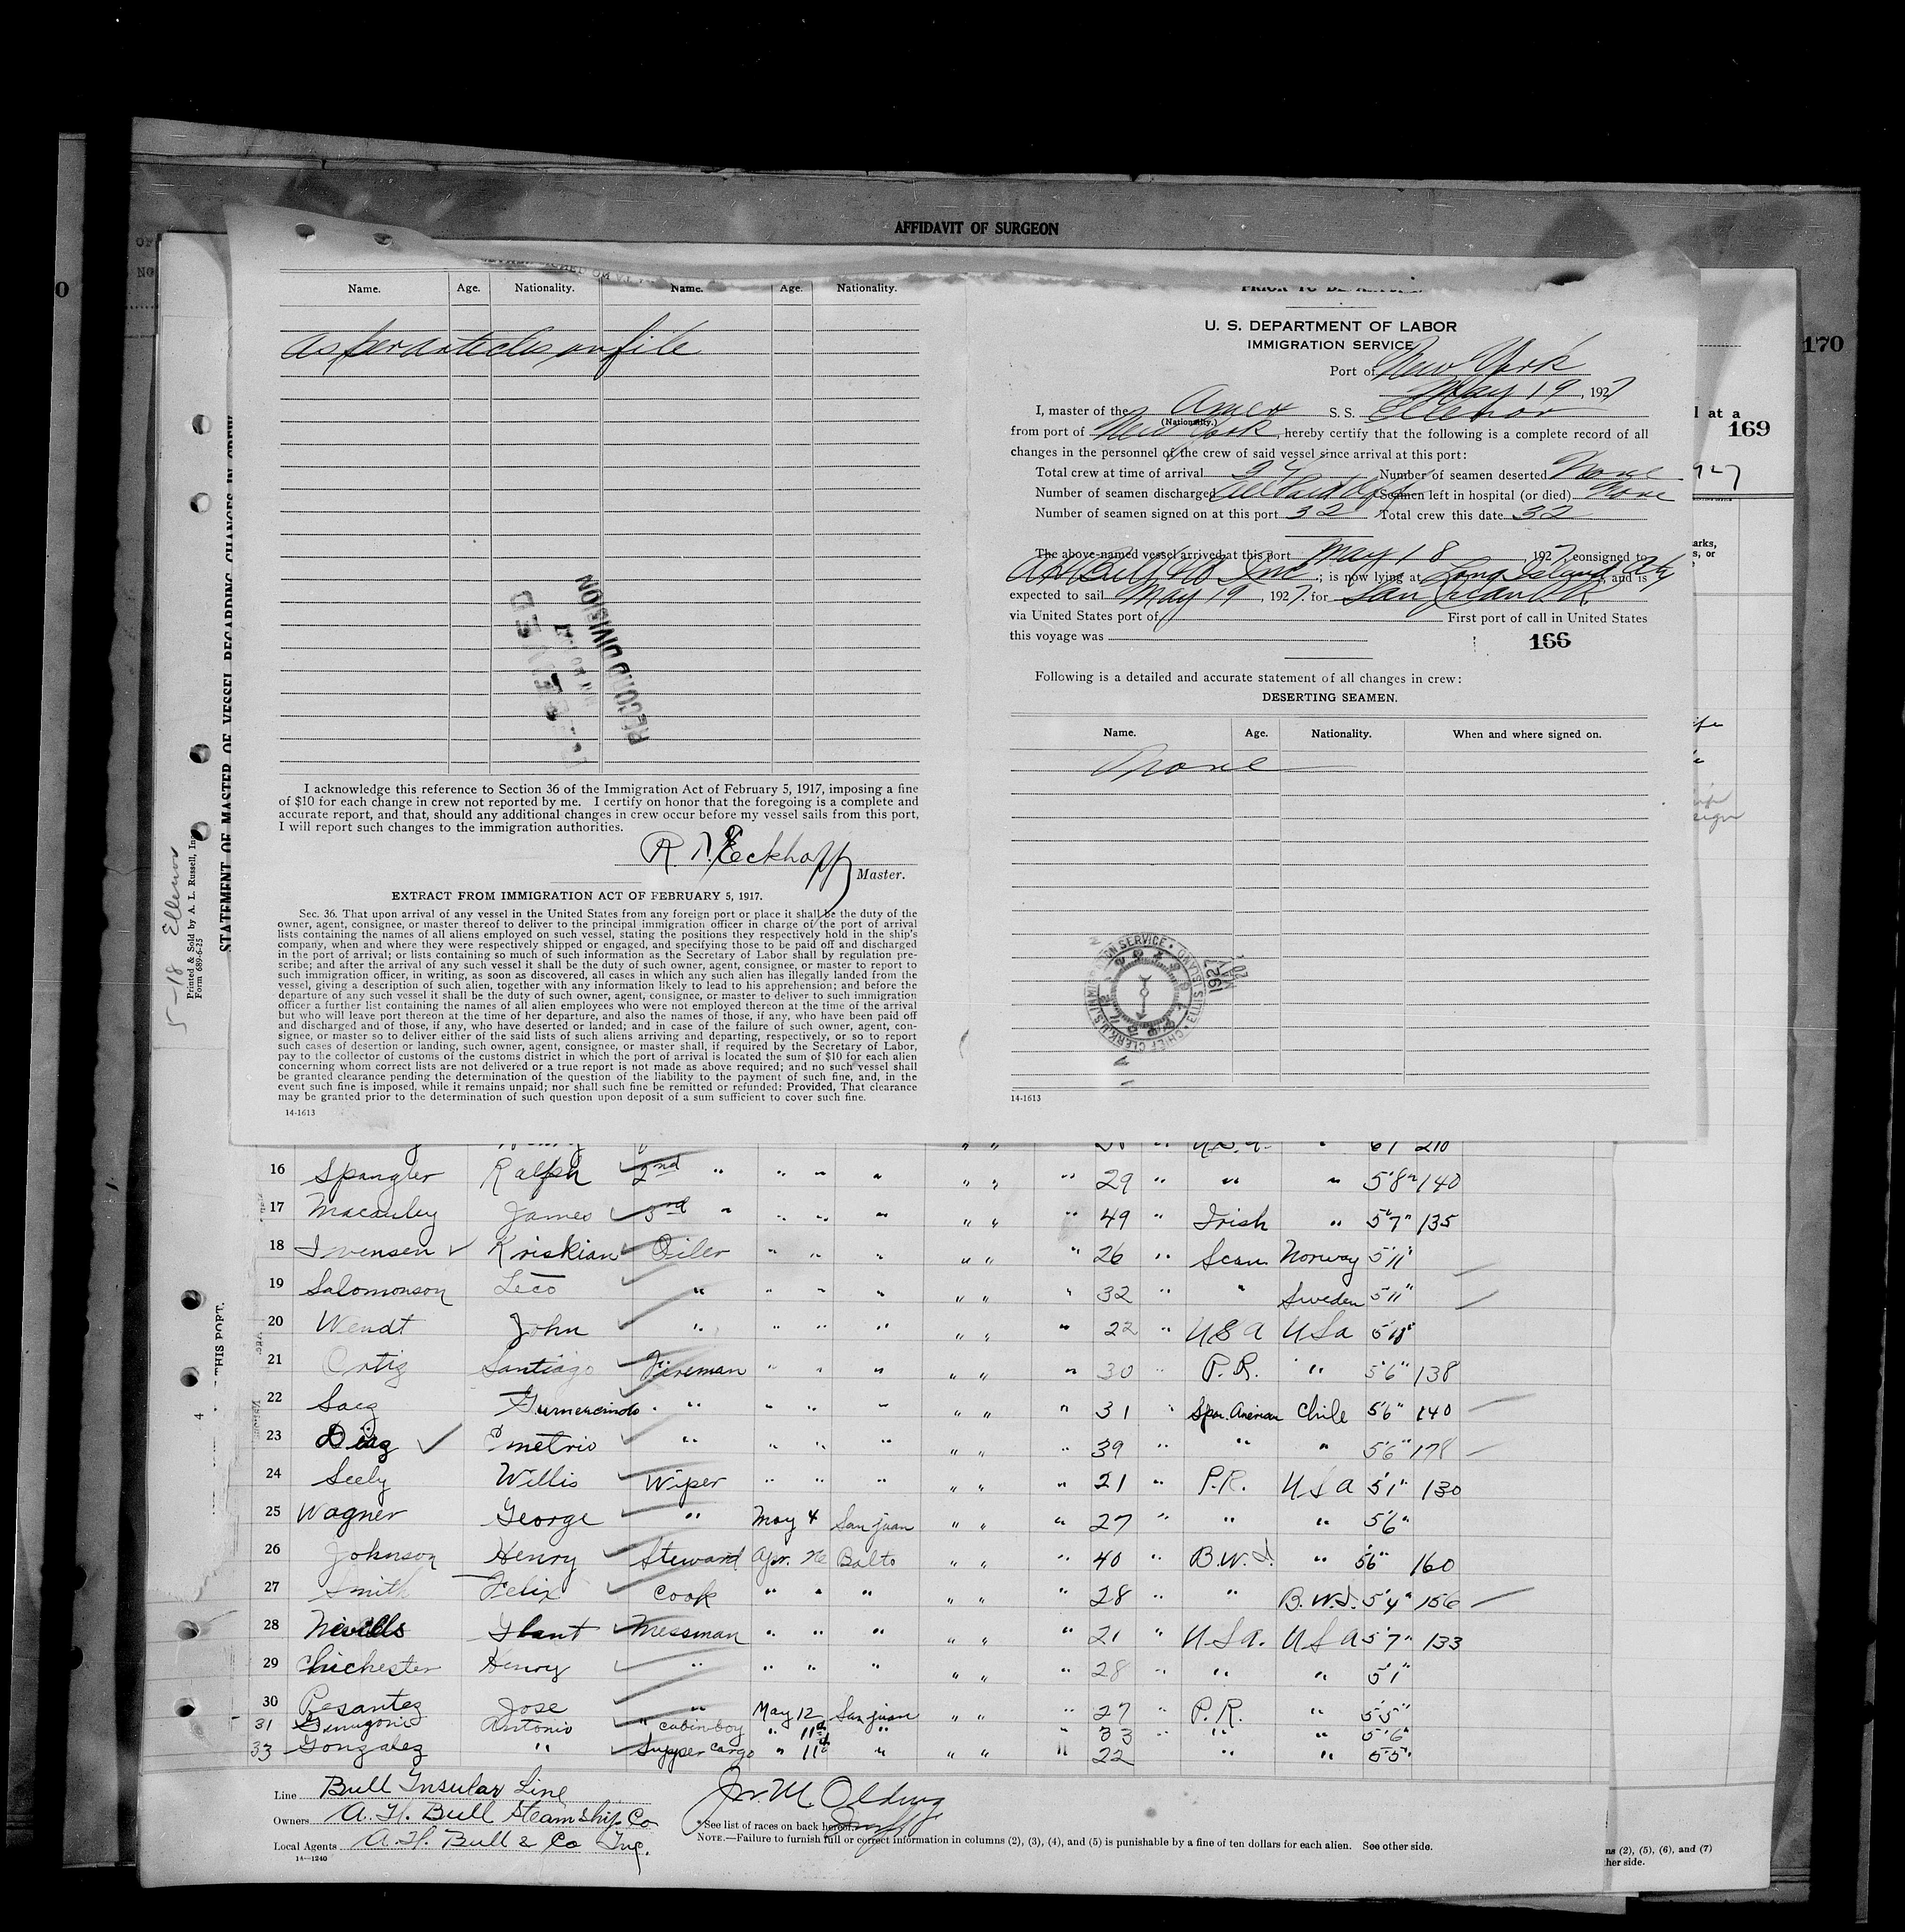 AFFIDAVIT OF SURGEON
170
169
l at a
Name. Age. Nationality. Name. Age. Nationality.
As per articles on file
I acknowledge this reference to Section 36 of the Immigration Act of February 5, 1917, imposing a fine
of $10 for each change in crew not reported by me. I certify on honor that the foregoing is a complete and
accurate report, and that, should any additional changes in crew occur before my vessel sails from this port,
I will report such changes to the immigration authorities.
Eckhoff
Master.
EXTRACT FROM IMMIGRATION ACT OF FEBRUARY 5, 1917.
Sec. 36. That upon arrival of any vessel in the United States from any foreign port or place it shall be the duty of the
owner, agent, consignee, or master thereof to deliver to the principal immigration officer in charge of the port of arrival
lists containing the names of all aliens employed on such vessel, stating the positions they respectively hold in the ship's
company, when and where they were respectively shipped or engaged, and specifying those to be paid off and discharged
in the port of arrival; or lists containing so much of such information as the Secretary of Labor shall by regulation pre-
scribe; and after the arrival of any such vessel it shall be the duty of such owner, agent, consignee, or master to report to
such immigration officer, in writing, as soon as discovered, all cases in which any such alien has illegally landed from the
vessel, giving a description of such alien, together with any information likely to lead to his apprehension; and before the
departure of any such vessel it shall be the duty of such owner, agent, consignee, or master to deliver to such immigration
officer a further list containing the names of all alien employees who were not employed thereon at the time of the arrival
but who will leave port thereon at the time of her departure, and also the names of those, if any, who have been paid off
and discharged and of those, if any, who have deserted or landed; and in case of the failure of such owner, agent, con-
signee, or master so to deliver either of the said lists of such aliens arriving and departing, respectively, or so to report
such cases of desertion or landing, such owner, agent, consignee, or master shall, if required by the Secretary of Labor,
pay to the collector of customs of the customs district in which the port of arrival is located the sum of $10 for each alien
concerning whom correct lists are not delivered or a true report is not made as above required; and no such vessel shall
be granted clearance pending the determination of the question of the liability to the payment of such fine, and, in the
event such fine is imposed, while it remains unpaid; nor shall such fine be remitted or refunded: Provided, That clearance
may be granted prior to the determination of such question upon deposit of a sum sufficient to cover such fine.
14-1613
U. S. DEPARTMENT OF LABOR
IMMIGRATION SERVICE
Port of New York
May 19, 1927
I, master of the Amer S. S. Ellenor
(Nationality.)
from port of New York, hereby certify that the following is a complete record of all
changes in the personnel of the crew of said vessel since arrival at this port:
Total crew at time of arrival Number of seamen deserted None
Number of seamen discharged All Paid Off Seamen left in hospital (or died) None
Number of seamen signed on at this port 32 Total crew this date 32
The above-named vessel arrived at this port May 18, 1927, consigned to
A H Bull Co Inc; is now lying at Long Island City, and is
expected to sail May 19, 1927 for San Juan P.R.
via United States port of First port of call in United States
this voyage was
166
Following is a detailed and accurate statement of all changes in crew:
DESERTING SEAMEN.
Name. Age. Nationality. When and where signed on.
None
14-1613
RECORD DIVISION
MAY 20 1927
STATEMENT OF MASTER OF VESSEL REGARDING CHANGES IN CREW
THIS PORT.
Printed & Sold by A. L. Russell, In
Form 689-6-25
5-18 Ellenor
16 Spangler Ralph 2nd " " " " " " " 29 " " " 5'8" 140
17 Macauley James 3rd " " " " " " " 49 " Irish " 5'7" 135
18 Iwensen Kriskian Oiler " " " " " " 26 " Scan Norway 5'11"
19 Salomonson Leco " " " " " " " 32 " " Sweden 5'11"
20 Wendt John " " " " " " " 22 " USA USa
21 Ortiz Santiago Fireman " " " " " " 30 " P.R. " 5'6" 138
22 Saez Gumercindo " " " " " " " 31 " Span. American Chile 5'6" 140
23 Diaz Emetrio " " " " " " " 39 " " " 5'6" 178
24 Seely Willis Wiper " " " " " " 21 " P.R. USA 5'1" 130
25 Wagner George " May 4 San juan " " " 27 " " " 5'6"
26 Johnson Henry Steward Apr. 26 Balto " " " 40 " B.W.I. " 5'6" 160
27 Smith Felix Cook " " " " " " 28 " " B.W.I. 5'4" 156
28 Nevills Grant Messman " " " " " " 21 " USA. USA 5'7" 133
29 Chichester Henry " " " " " " " 28 " " " 5'1"
30 Pesantez Jose " May 12 San juan " " " 27 " P.R. " 5'5"
31 Antonio " cabin boy " 11th " 33 " " " 5'6"
33 Gonzalez " Supper cargo " 11th " " " " 22 " " 5'5"
Line Bull Insular Line
Owners A. H. Bull Steam Ship Co
Local Agents A. H. Bull & Co Inc.
14-1240
Olding
* See list of races on back hereof.
NOTE.—Failure to furnish full or correct information in columns (2), (3), (4), and (5) is punishable by a fine of ten dollars for each alien. See other side.
ns (2), (5), (6), and (7)
her side.